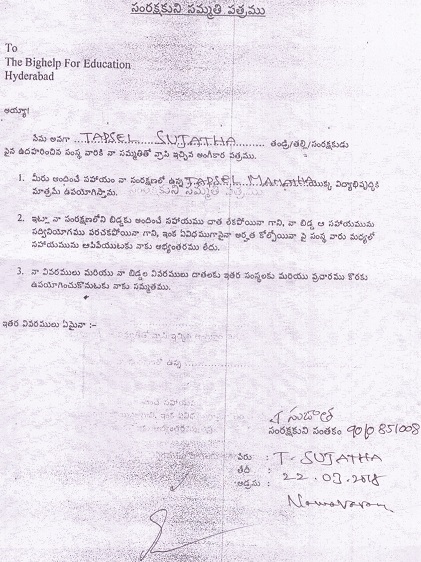 సంరక్షకుని సమ్మతి పత్రము
To
The Bighelp For Education
Hyderabad
అయ్యా!
నేను అనగా TAPSEL SUJATHA తండ్రి/తల్లి/సంరక్షకుడు
పైన ఉదహరించిన సంస్థ వారికి నా సమ్మతితో వ్రాసి ఇచ్చిన అంగీకార పత్రము.
1. మీరు అందించే సహాయం నా సంరక్షణలో ఉన్న TAPSEL MAMATHA యొక్క విద్యాభివృద్ధికి
మాత్రమే ఉపయోగిస్తాను.
2. ఇట్లా నా సంరక్షణలోని బిడ్డకు అందించే సహాయము దాత లేకపోయినా గాని, నా బిడ్డ ఆ సహాయమును
సద్వినియోగము పరచకపోయినా గాని, ఇంక ఏవిధముగానైనా అర్హత కోల్పోయినా పై సంస్థ వారు మధ్యలో
సహాయమును ఆపివేయుటకు నాకు అభ్యంతరము లేదు.
3. నా వివరములు మరియు నా బిడ్డల వివరములు దాతలకు ఇతర సంస్థలకు మరియు ప్రచారము కొరకు
ఉపయోగించుకొనుటకు నాకు సమ్మతము.
ఇతర వివరములు ఏమైనా :-
సుజాత
సంరక్షకుని సంతకం 9010851008
పేరు : T. SUJATHA
తేదీ : 22.03.2018
అడ్రసు :